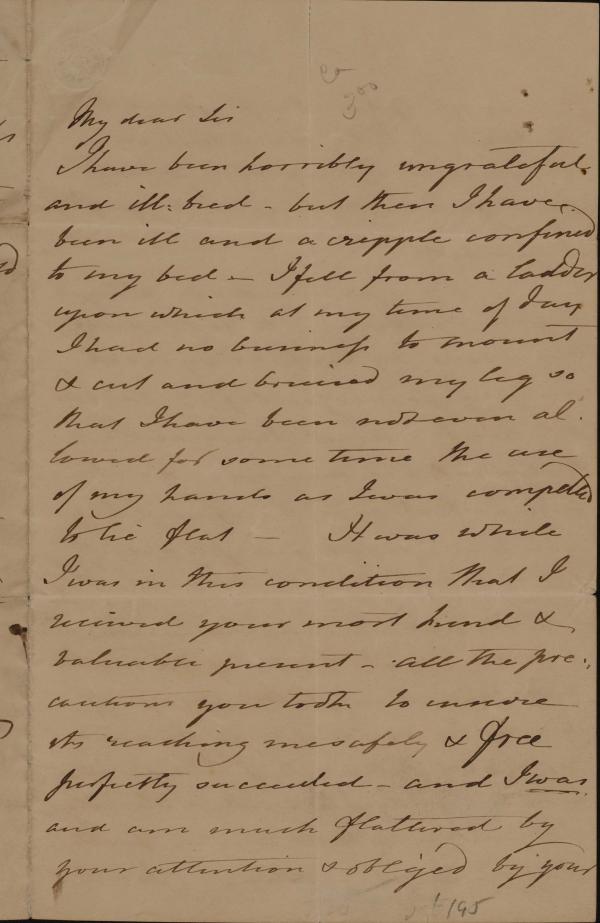 My dear Sir
I have been horribly ungrateful
and ill-bred - but then I have
been ill and a cripple confined
to my bed - I fell from a ladder
upon which at my time of day
I had no business to mount
& cut and bruised my leg so
that I have been not even al-
lowed for some time the use
of my hands as I was compelled
to lie flat - It was while
I was in this condition that I
received your most kind &
valuable present - all the pre-
cautions you took to insure
its reaching me safely & free
perfectly succeeded - and I was
and am much flattered by
your attention & obliged by your
195